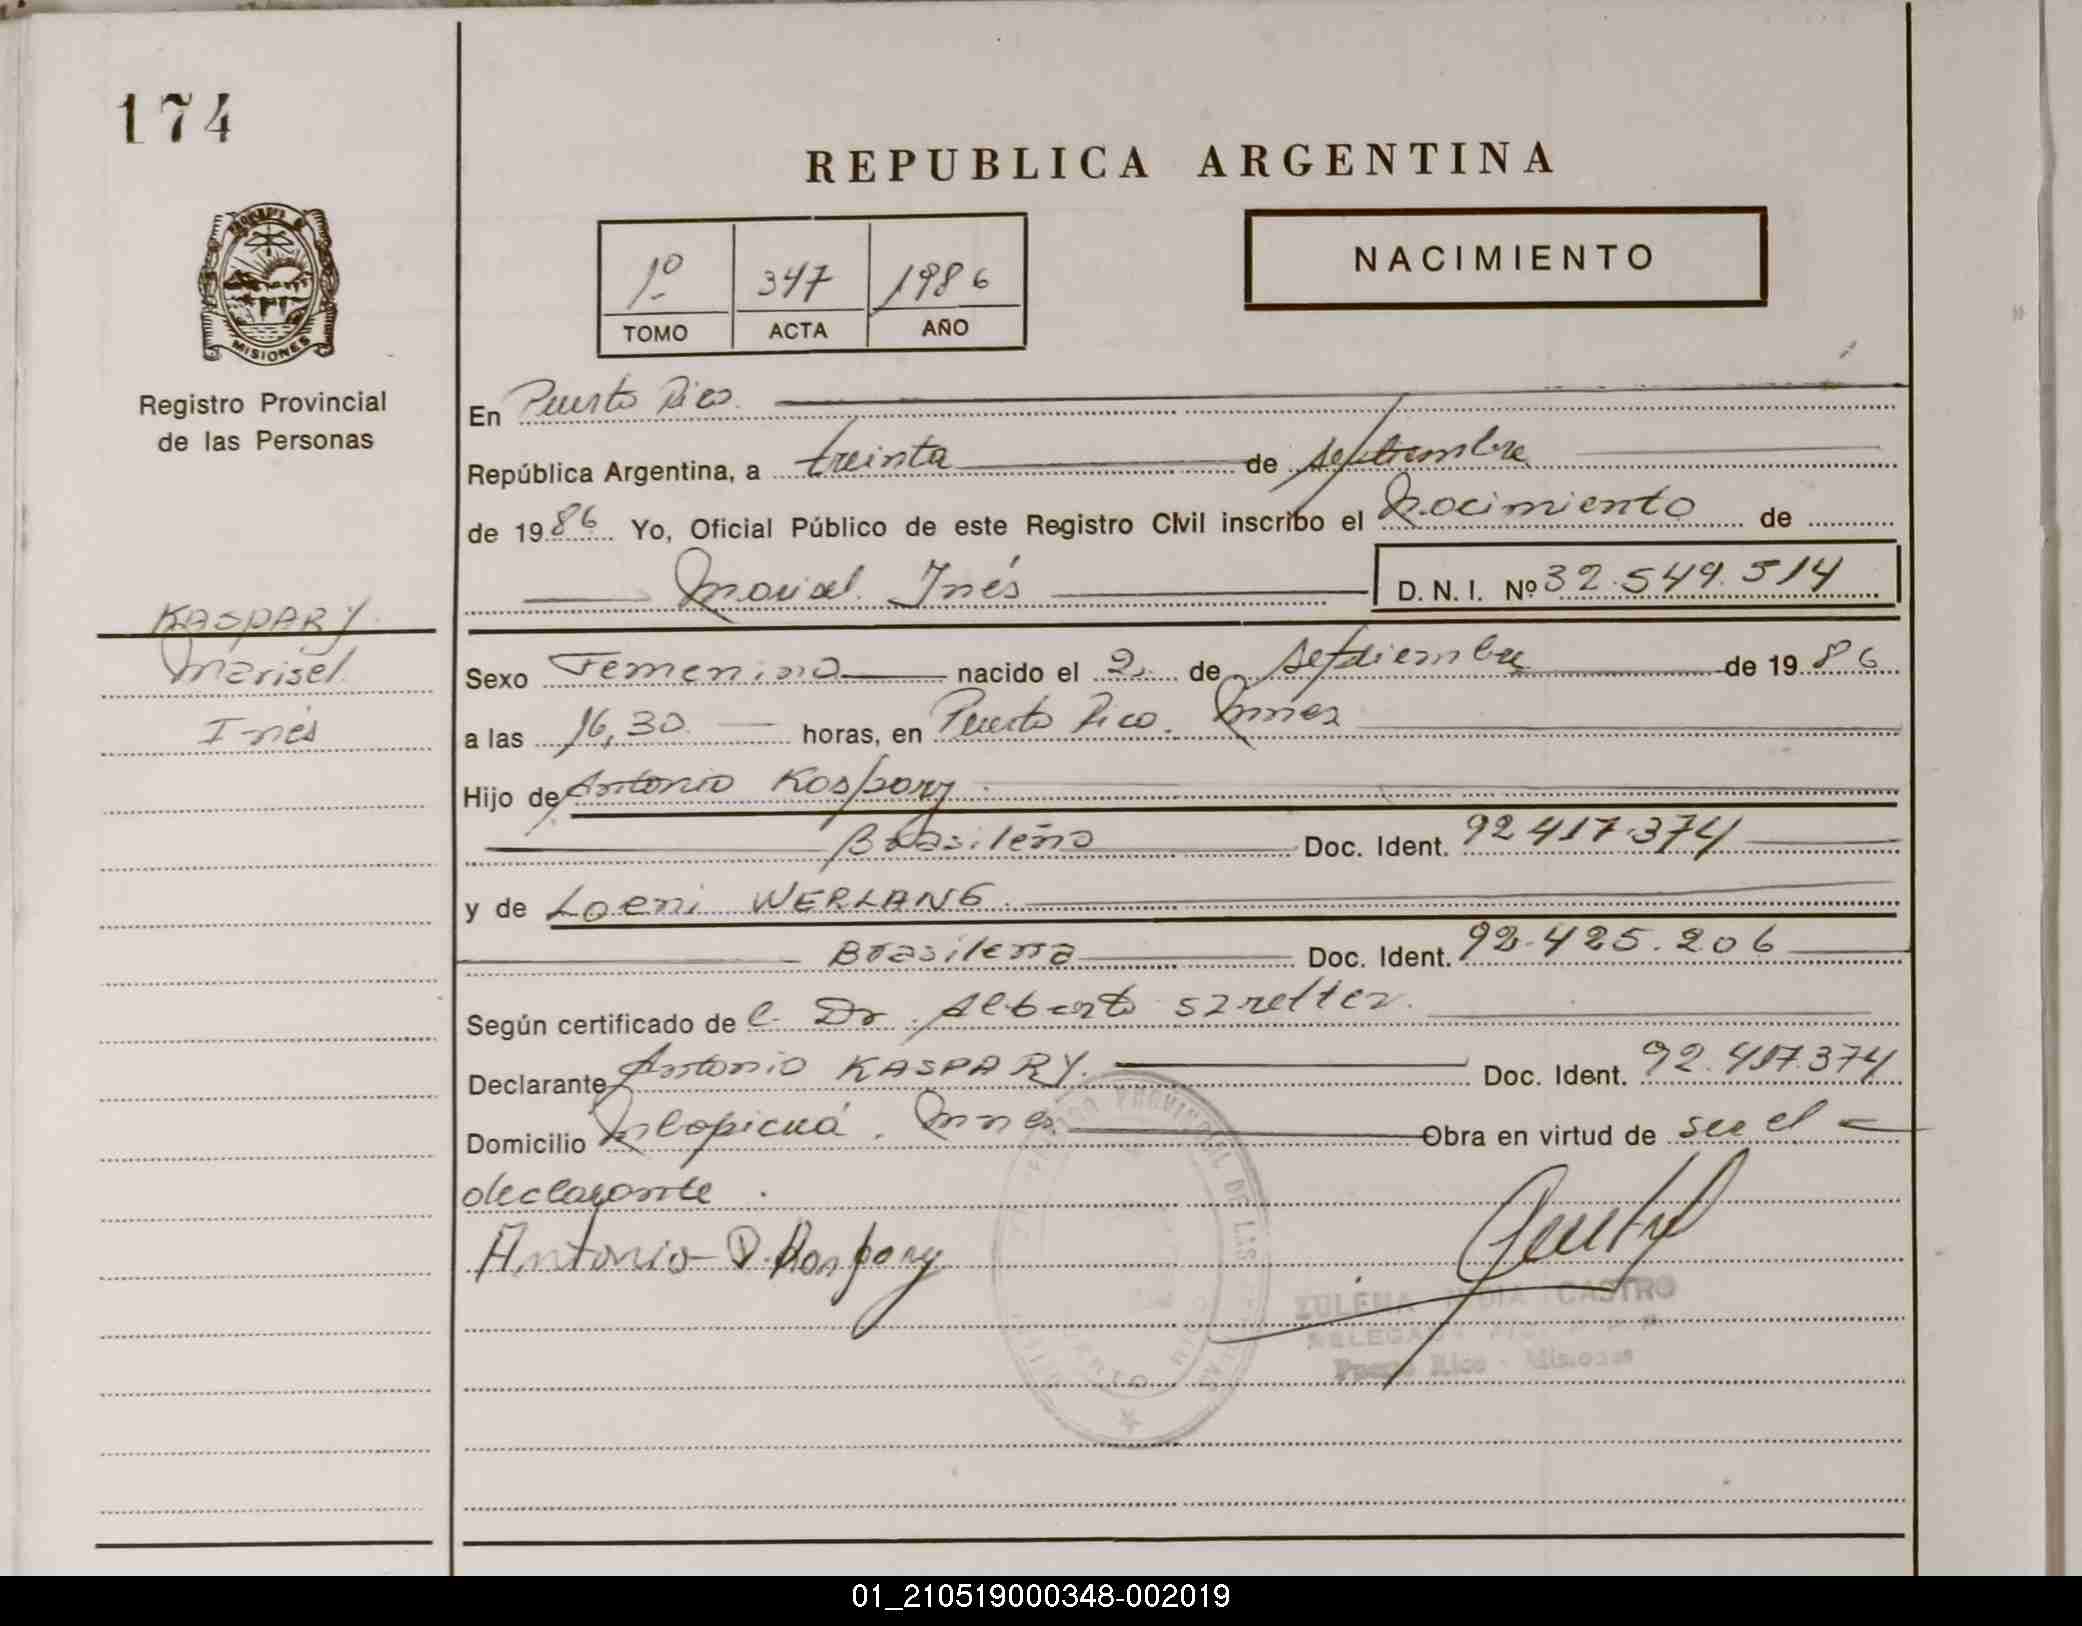 174
REPUBLICA ARGENTINA
NACIMIENTO
1º 347 1986
TOMO ACTA AÑO
MISIONES
Registro Provincial
de las Personas
KASPARY
Marisel
Inés
En Puerto Rico.
República Argentina, a treinta de septiembre
de 1986 Yo, Oficial Público de este Registro Civil inscribo el Nacimiento de
Marisel Inés D.N.I. Nº 32.549.514
Sexo Femenino nacido el 2 de septiembre de 1986
a las 16,30 horas, en Puerto Rico. Mnes
Hijo de Antonio Kaspary
Brasileño Doc. Ident. 92.417.374
y de Loeni WERLANG
Brasilera Doc. Ident. 92.425.206
Según certificado de l Dr. Alberto
Declarante Antonio KASPARY. Doc. Ident. 92.417.374
Domicilio Mbopicuá. Mnes Obra en virtud de ser el
declarante.
Antonio Kaspary
ZULEMA CASTRO
Puerto Rico - Misiones
01_210519000348-002019